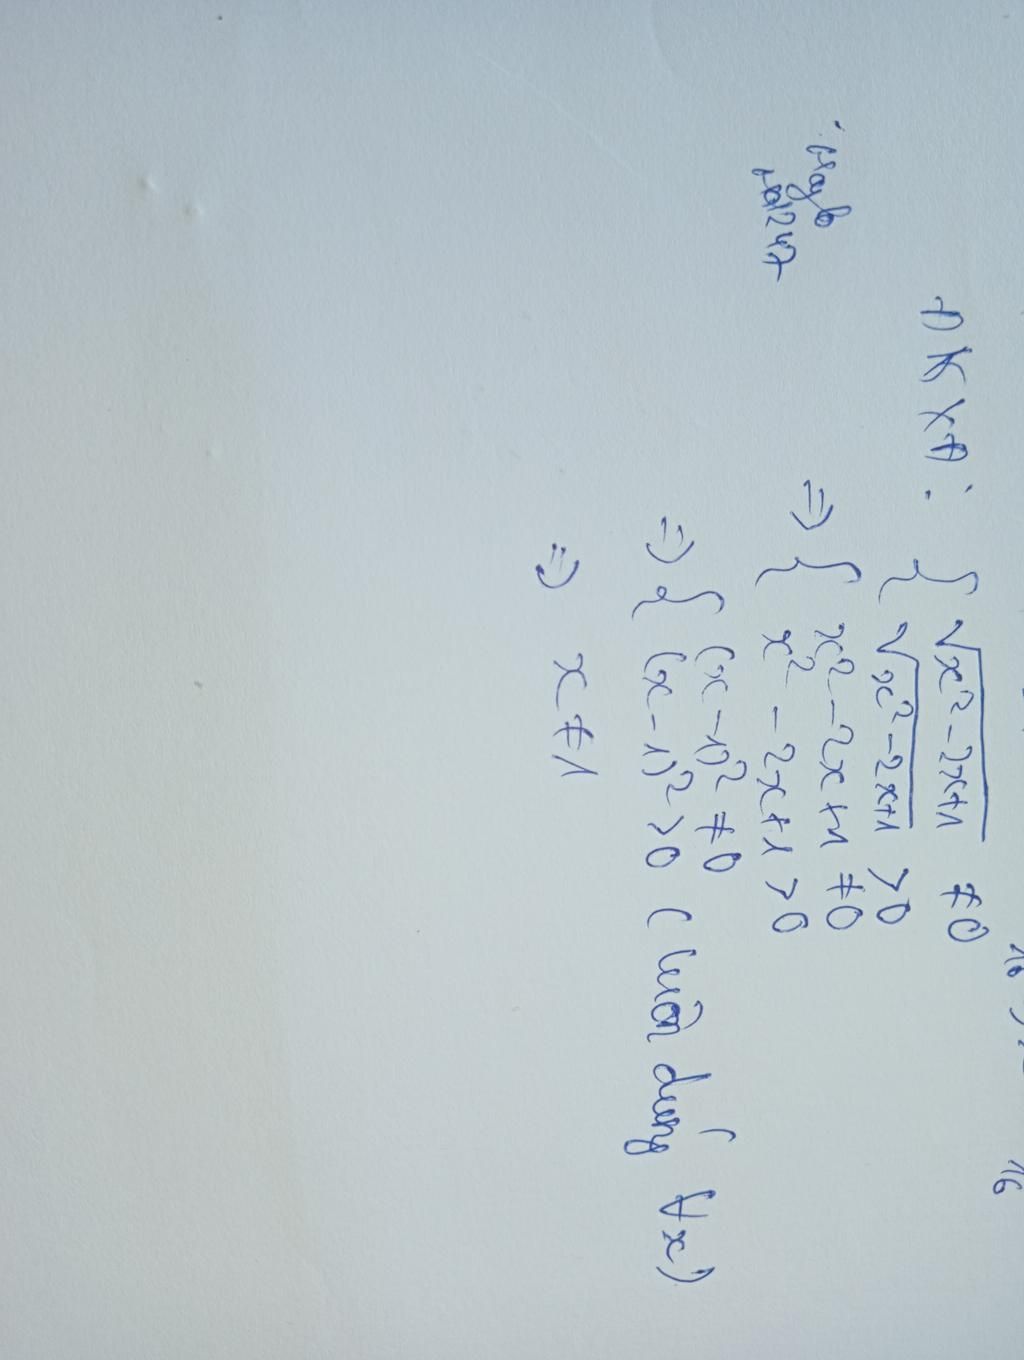 16
16
ĐKXĐ: { √x²-2x+1 ≠0
√x²-2x+1 >0
=> { x²-2x+1 ≠0
x²-2x+1 >0
=> { (x-1)² ≠0
(x-1)² >0 (luôn đúng ∀x)
=> x≠1